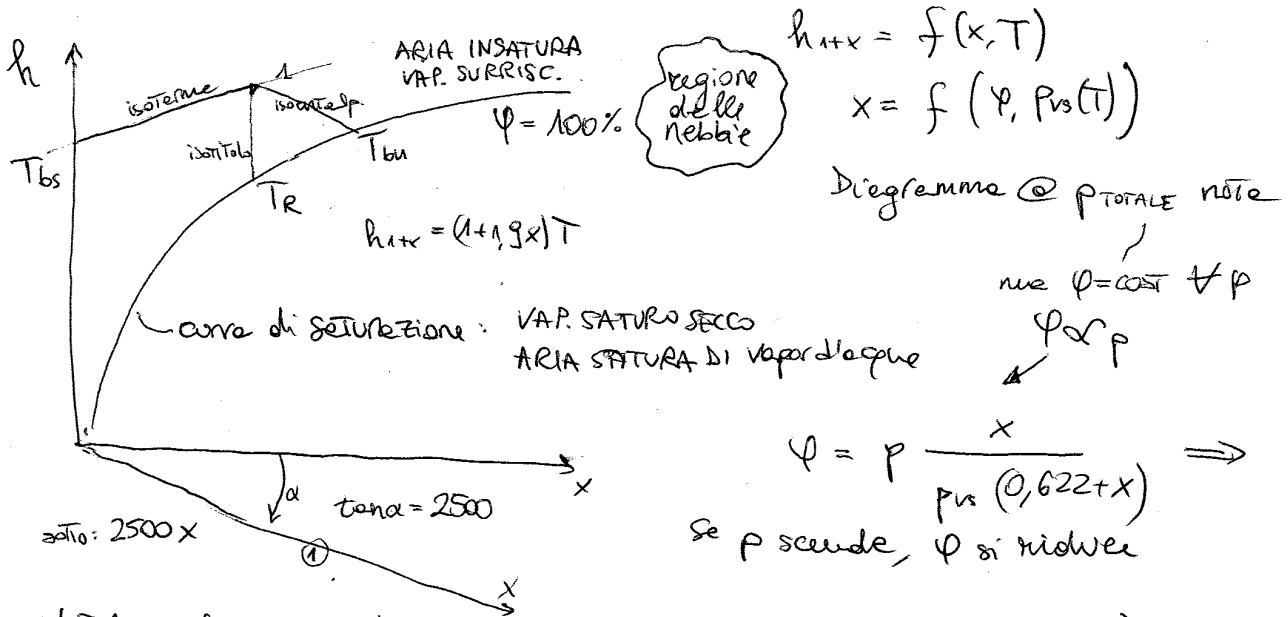 h
ARIA INSATURA
VAP. SURRISC.
1
isoterme
isoentalp
isotitolo
φ = 100%
regione
delle
nebbie
Tbs
Tbu
TR
h1+x = (1+1,9x)T
curva di saturazione: VAP. SATURO SECCO
ARIA SATURA DI vapor d'acque
x
α
tanα = 2500
sotto: 2500 x
①
x
h1+x = f(x,T)
x = f(φ, Pvs(T))
Diegramme @ PTOTALE note
φ=cost ∀ p
φ ∝ p
φ = p x / pvs (0,622+x) ⇒
Se p scende, φ si riduce